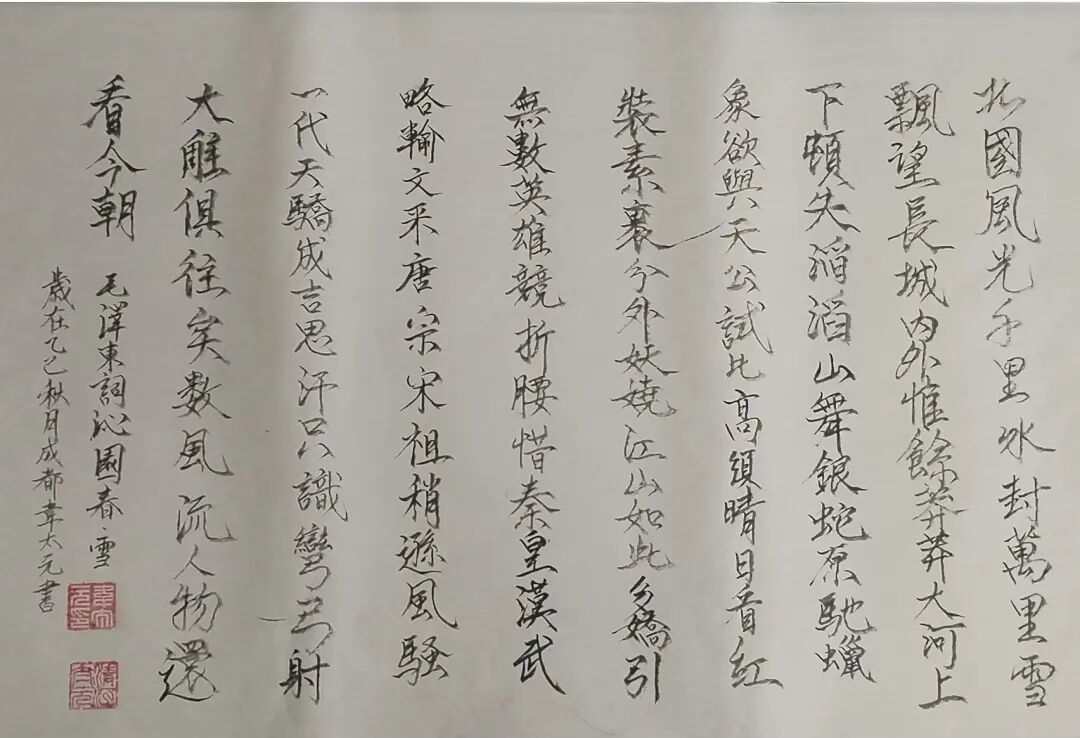 北國風光千里冰封萬里雪
飄望長城內外惟餘莽莽大河上
下頓失滔滔山舞銀蛇原馳蠟
象欲與天公試比高須晴日看紅
裝素裹分外妖嬈江山如此多嬌引
無數英雄競折腰惜秦皇漢武
略輸文采唐宗宋祖稍遜風騷
一代天驕成吉思汗只識彎弓射
大雕俱往矣数風流人物還
看今朝
毛澤東詞沁園春雪
歲在乙巳秋月成都韋太元書